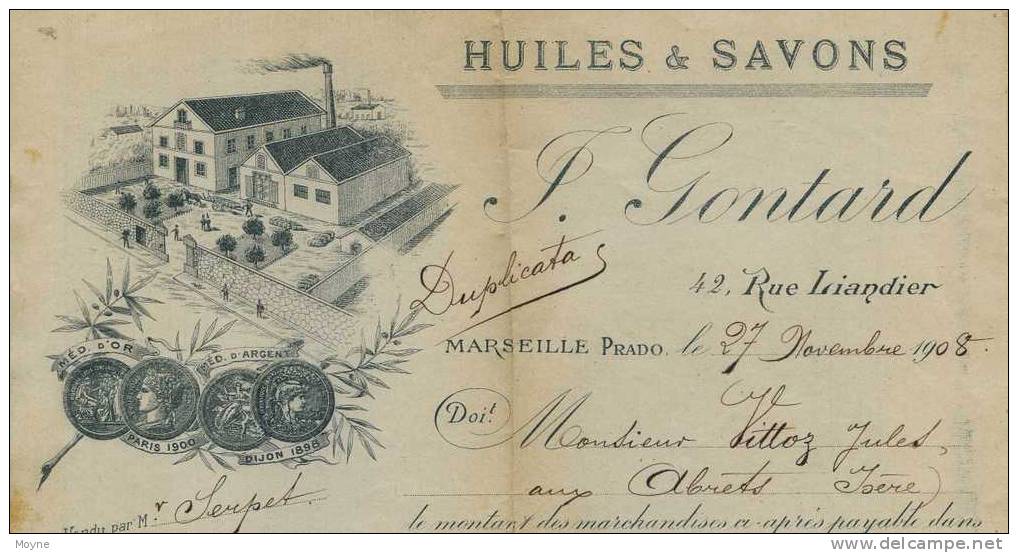 HUILES & SAVONS
J. Gontard
Duplicata
42, Rue Liandier
MARSEILLE PRADO, le 27 Novembre 1908.
MÉD. D'OR
MÉD. D'ARGENT
PARIS 1900
DIJON 1898
Doit
Monsieur Vittoz Jules
aux Abrets (Isère)
Vendu par Mr Serpet.
le montant des marchandises ci-après payable dans
Moyne
www.delcampe.net